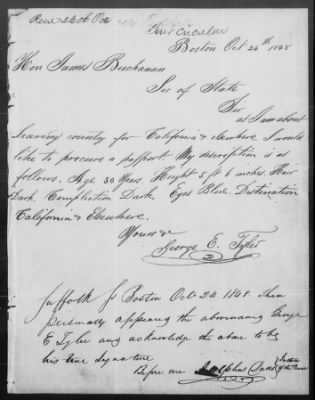 Recd 26th Oct
Sent Circular
Boston Oct 24th 1848
Hon James Buchanan
Sec of State
Sir
as I am about
leaving country for California & elsewhere I would
like to procure a passport. My description is as
follows. Age 30 years Height 5 ft 6 inches Hair
Dark. Complection Dark. Eyes Blue Destination
California & Elsewhere.
Yours &c
George E. Tyler
Suffolk ss Boston Oct 24 1848. Then
personally appearing the abovenamed George
E Tyler and acknowledge the above to be
his true signature
Before me
Justice
of the Peace